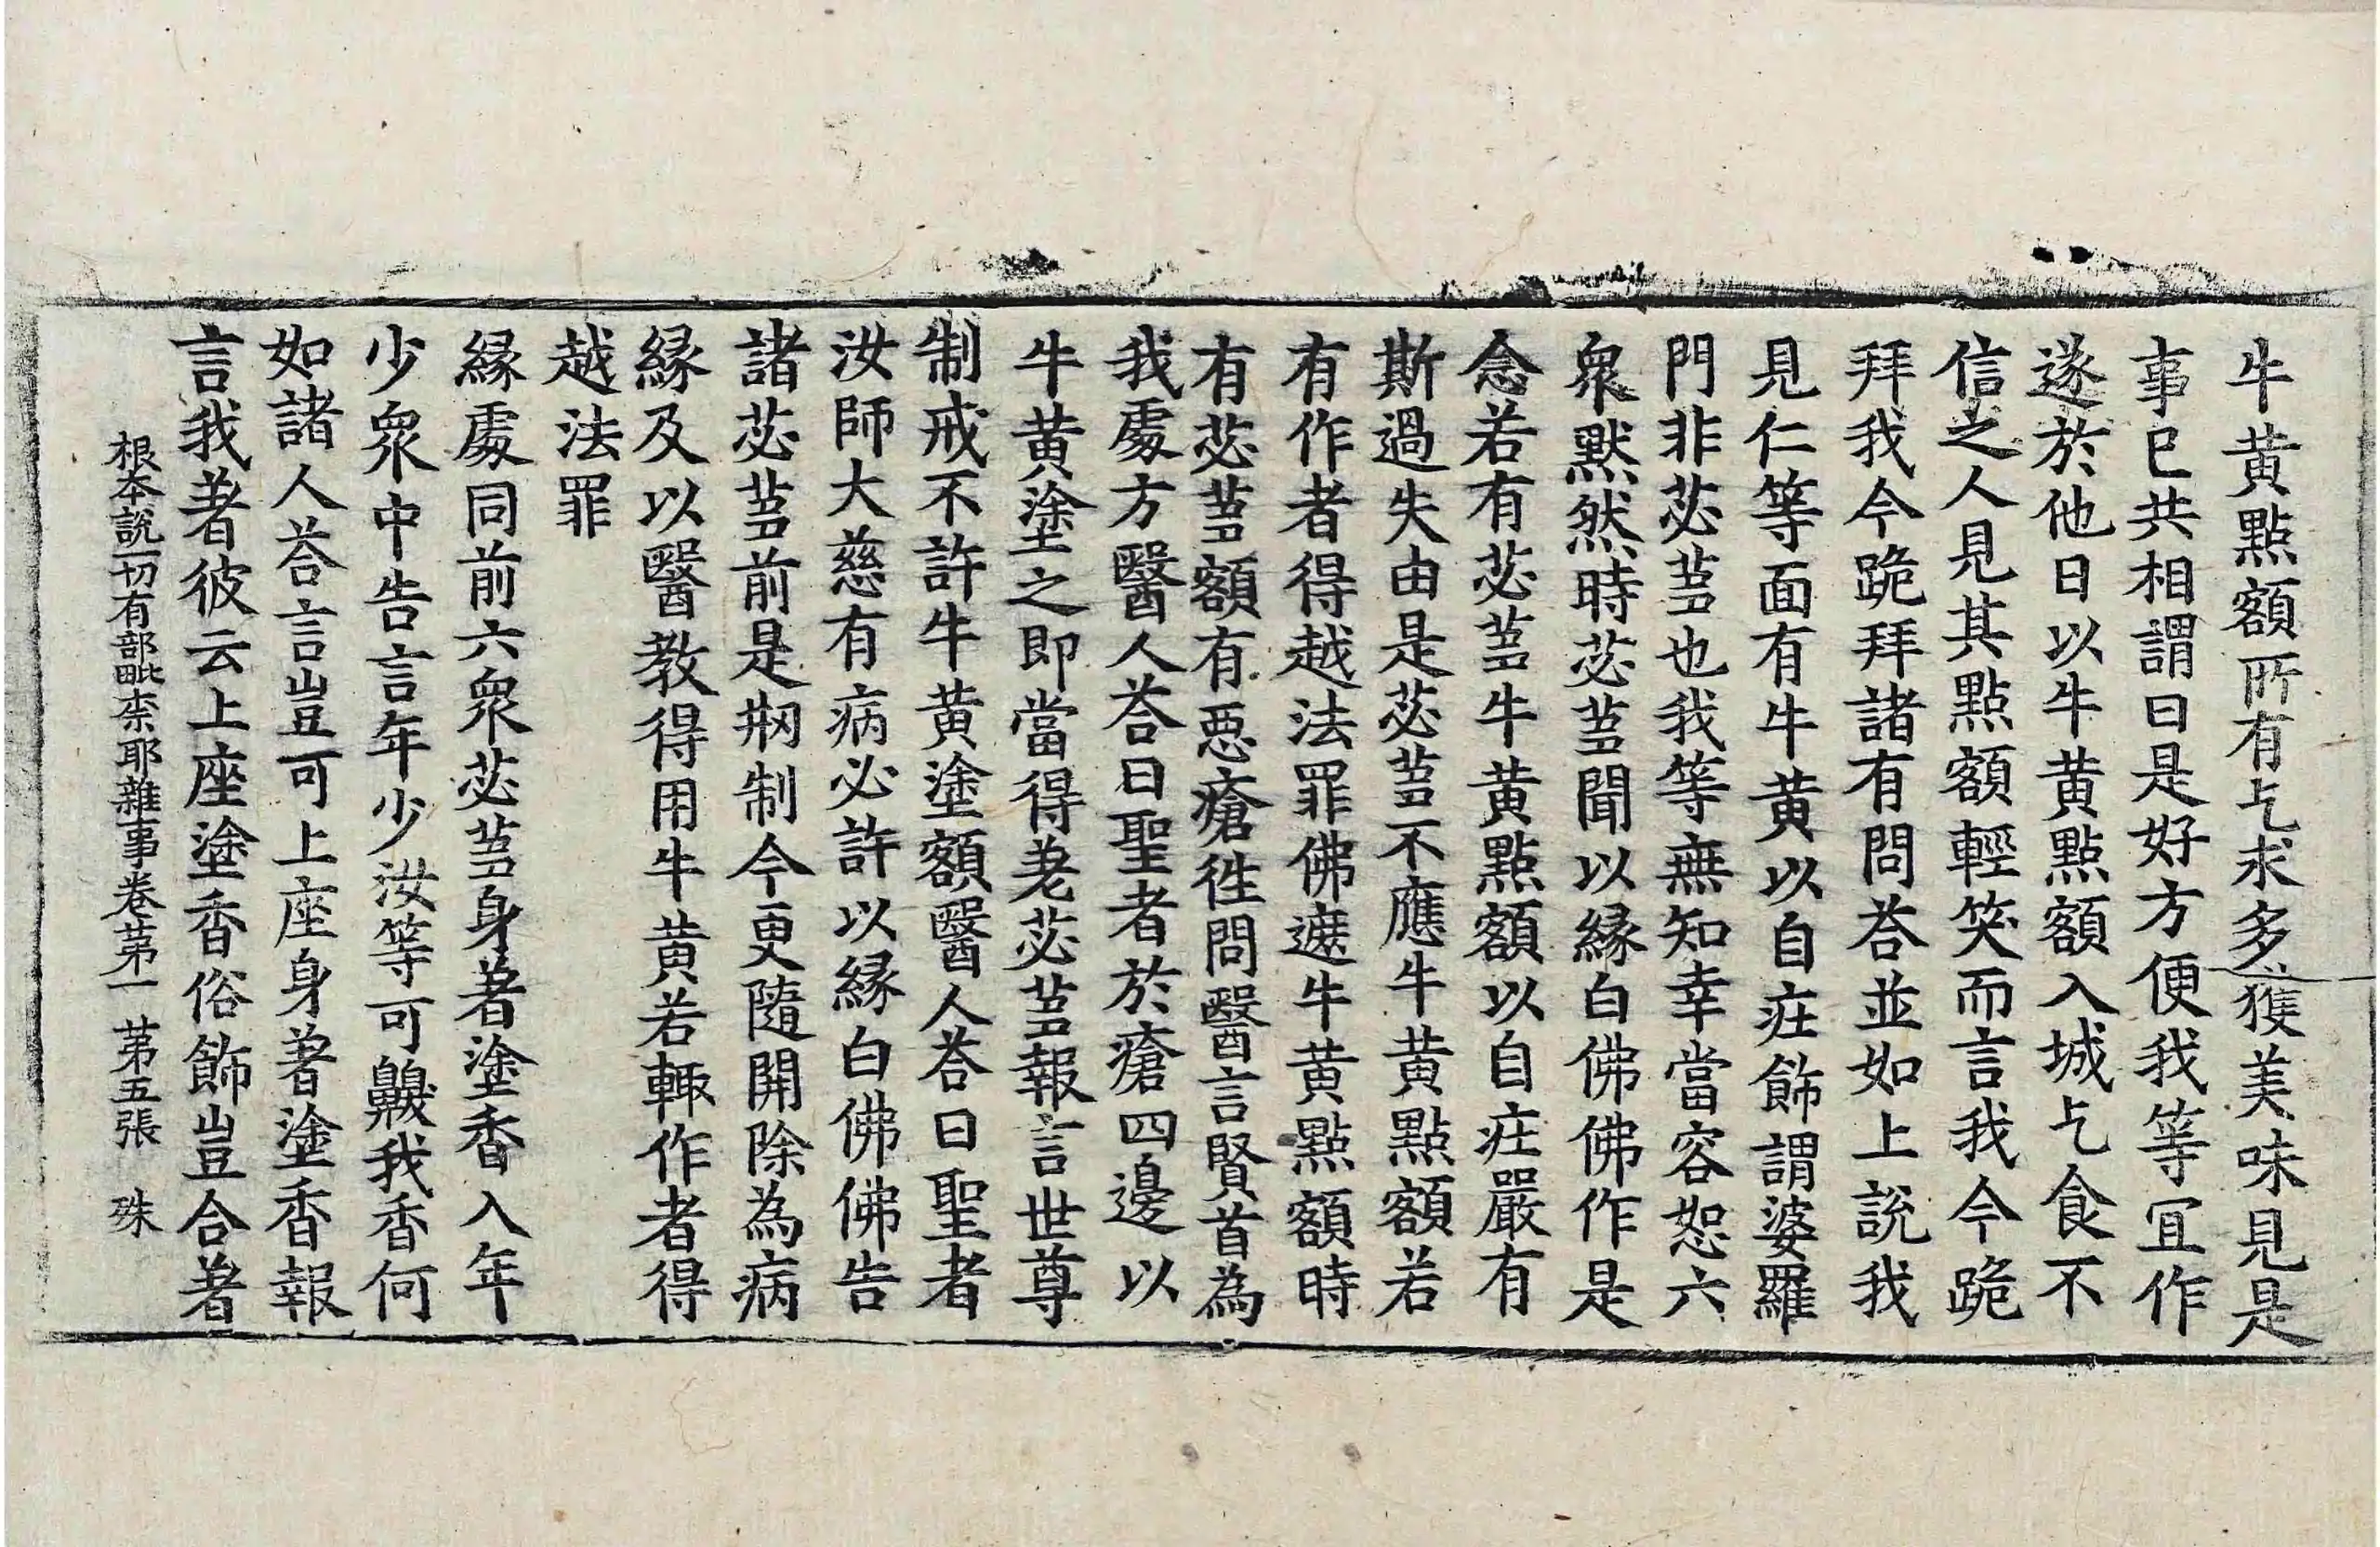 牛黃點額所有乞求多獲美味見是
事已共相謂曰是好方便我等宜作
遂於他日以牛黃點額入城乞食不
信之人見其點額輕笑而言我今跪
拜我今跪拜諸有問荅並如上說我
見仁等面有牛黃以自疘飾謂婆羅
門非苾芻也我等無知幸當容恕六
衆默然時苾芻聞以緣白佛佛作是
念若有苾芻牛黃點額以自疘嚴有
斯過失由是苾芻不應牛黃點額若
有作者得越法罪佛遮牛黃點額時
有苾芻額有惡瘡徃問醫言賢首為
我處方醫人荅曰聖者於瘡四邊以
牛黃塗之即當得差苾芻報言世尊
制戒不許牛黃塗額醫人荅曰聖者
汝師大慈有病必許以緣白佛佛告
諸苾芻前是剏制今更隨開除為病
緣及以醫教得用牛黃若輙作者得
越法罪
緣處同前六衆苾芻身著塗香入年
少衆中告言年少汝等可齅我香何
如諸人荅言豈可上座身著塗香報
言我著彼云上座塗香俗飾豈合著
根本說一切有部毗柰耶雜事卷苐一 苐五張 殊